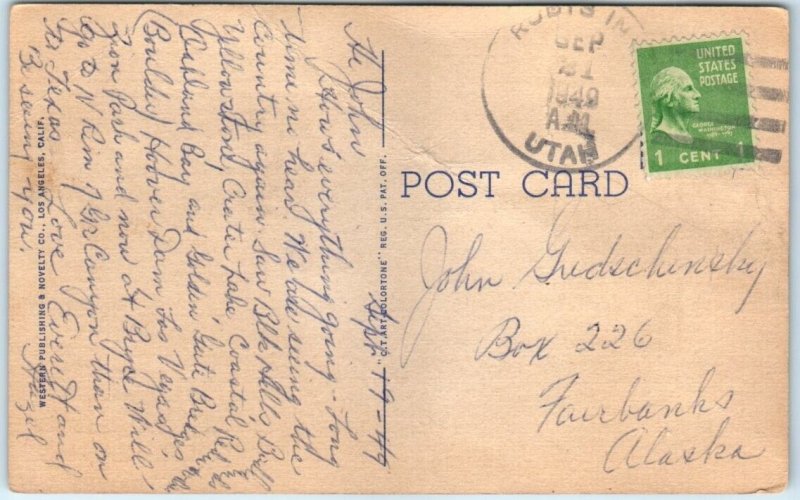 Sept. 19-49
Hi John
How's everything going - Long
time no hear. We are seeing the
Country again. Saw Blk Hills
Yellowstone, Crater Lake, Coastal Red
Oakland Bay and Golden Gate Bridges
(Boulder) Hoover Dam Las Vegas,
Zion Park and now at Bryce Will
go to N Rim of Gr Canyon then on
to Texas Love Everett and
Hazel
B seeing you.
WESTERN PUBLISHING & NOVELTY CO., LOS ANGELES, CALIF.
"C.T. ART-COLORTONE" REG. U.S. PAT. OFF.
SEP
21
1949
A.M.
UTAH
UNITED
STATES
POSTAGE
GEORGE
WASHINGTON
1 CENT 1
POST CARD
John Gudschinsky
Box 226
Fairbanks
Alaska